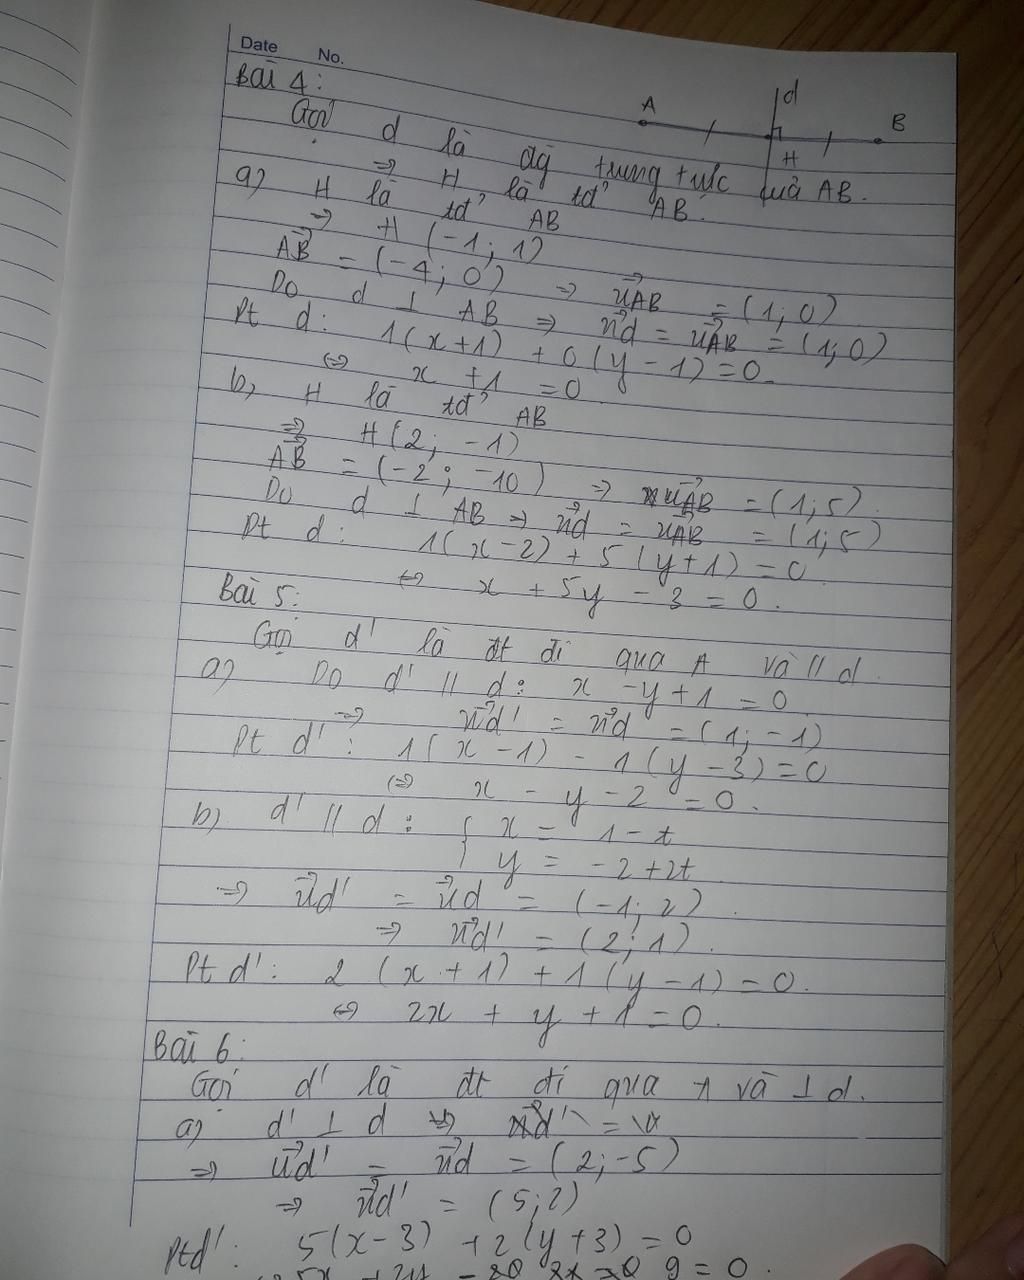 Date No.
Bài 4:
A d B H
Gọi d là đg trung trực của AB.
⇒ H là tđ' AB.
a) H là tđ' AB
⇒ H (-1; 1)
AB = (-4; 0) ⇒ uAB = (1; 0)
Do d ⊥ AB ⇒ nd = uAB = (1; 0)
Pt d: 1(x+1) + 0(y-1) = 0.
⇔ x + 1 = 0
b, H là tđ' AB
⇒ H(2; -1)
AB = (-2; -10) ⇒ uAB = (1; 5).
Do d ⊥ AB ⇒ nd = uAB = (1; 5)
Pt d: 1(x-2) + 5(y+1) = 0
⇔ x + 5y - 3 = 0.
Bài 5:
Gọi d' là đt đi qua A và // d.
a) Do d' // d: x - y + 1 = 0
⇒ nd' = nd = (1; -1)
Pt d': 1(x-1) - 1(y-3) = 0
⇔ x - y - 2 = 0.
b) d' // d: { x = 1 - t
y = -2 + 2t
⇒ ud' = ud = (-1; 2).
⇒ nd' = (2; 1).
Pt d': 2(x+1) + 1(y-1) = 0.
⇔ 2x + y + 1 = 0.
Bài 6:
Gọi d' là đt đi qua A và ⊥ d.
a) d' ⊥ d
⇒ ud' = nd = (2; -5)
⇒ nd' = (5; 2)
Pt d': 5(x-3) + 2(y+3) = 0
⇔ 5x + 2y - 9 = 0.